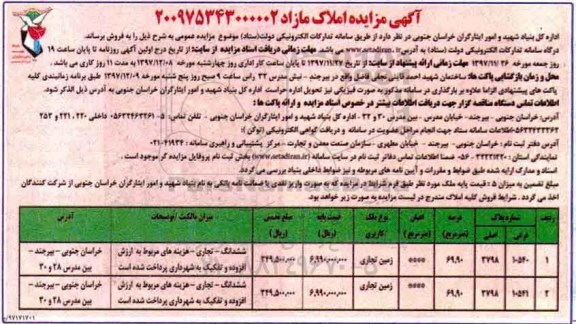 آگهی مزایده املاک مازاد ۲۰۰۹۷۵۳۴۳۰۰۰۰۰۲
اداره کل بنیاد شهید و امور ایثارگران خراسان جنوبی در نظر دارد از طریق سامانه تدارکات الکترونیکی دولت(ستاد) موضوع مزایده عمومی به شرح ذیل را به فروش برساند.
درگاه سامانه تدارکات الکترونیکی دولت (ستاد) به آدرس www.setadiran.ir می باشد. مهلت زمانی دریافت اسناد مزایده از سایت: از تاریخ درج اولین آگهی روزنامه تا پایان ساعت ۱۹
روز جمعه مورخه ۱۳۹۷/۱۱/۲۶ مهلت زمانی ارائه پیشنهاد از سایت: از تاریخ ۱۳۹۷/۱۱/۲۷ تا پایان ساعت کار اداری روز چهارشنبه مورخه ۱۳۹۷/۱۲/۰۸ به مدت ۱۱ روز کاری می باشد.
محل و زمان بازگشایی پاکت ها: ساختمان شهید احمد قایینی محل فاضل واقع در بیرجند - نبش مدرس ۳۲ راس ساعت ۹ صبح روز پنج شنبه مورخه ۱۳۹۷/۱۲/۰۹ طبق برنامه زمانبندی کلیه
پاکت های پیشنهادی الزاما علاوه بر بارگذاری در سامانه مذکور به صورت فیزیکی نیز تحویل اداره حراست اداره کل بنیاد شهید و امور ایثارگران خراسان جنوبی به آدرس ذیل الذکر شود.
اطلاعات تماس دستگاه مناقصه گزار جهت دریافت اطلاعات بیشتر در خصوص اسناد مزایده و ارائه پاکت ها :
آدرس: خراسان جنوبی - بیرجند - خیابان مدرس - بین مدرس ۳۰ و ۳۲ - اداره کل بنیاد شهید و امور ایثارگران خراسان جنوبی - تلفن تماس: ۵-۰۵۶۳۲۴۶۳۲۶۱ داخلی ۲۲۰ ، ۲۲۱ و ۲۵۳
اطلاعات سامانه ستاد جهت انجام مراحل عضویت در سامانه و دریافت گواهی الکترونیکی (توکن):
آدرس دفتر ثبت نام : خراسان جنوبی - بیرجند - خیابان مطهری - سازمان صنعت معدن و تجارت - مرکز پشتیبانی و راهبری سامانه : ۴۱۹۳۴-۰۲۱
نمایندگی استان : ۳۲۲۲۱۲۲۰-۰۵۶ ضمنا اطلاعات تماس دفاتر ثبت نام در سایت سامانه (www.setadiran.ir) بخش ثبت نام پروفایل مزایده گر موجود است.
اسناد و مدارک ارایه شده طبق ضوابط و مقررات و آیین نامه های مربوطه و نیز ضوابط داخلی بنیاد بررسی می گردد.
مبلغ تضمین به میزان ۵٪ قیمت پایه ملک مورد نظر طبق فرم شرایط در مزایده که به صورت واریز نقدی یا ضمانت نامه بانکی به نام بنیاد شهید و امور ایثارگران خراسان جنوبی از شرکت کنندگان
اخذ می گردد. شرایط فروش کلیه املاک مندرج در لیست مزایده به صورت زیر خواهد بود.
ردیف شماره پلاک عرصه (مترمربع) اعیان (مترمربع) نوع ملک/کاربری قیمت پایه (ریال) مبلغ تضمین (ریال) میزان مالکیت / توضیحات آدرس
فرعی اصلی
۱ ۱۰۵۴۰ ۳۷۹۸ ۶۹,۹۰ **** زمین تجاری ۶,۹۹۰,۰۰۰,۰۰۰ ۳۴۹,۵۰۰,۰۰۰ ششدانگ - تجاری - هزینه های مربوط به ارزش افزوده و تفکیک به شهرداری پرداخت شده است خراسان جنوبی - بیرجند - بین مدرس ۲۸ و ۳۰
۲ ۱۰۵۴۱ ۳۷۹۸ ۶۹,۹۰ **** زمین تجاری ۶,۹۹۰,۰۰۰,۰۰۰ ۳۴۹,۵۰۰,۰۰۰ ششدانگ - تجاری - هزینه های مربوط به ارزش افزوده و تفکیک به شهرداری پرداخت شده است خراسان جنوبی - بیرجند - بین مدرس ۲۸ و ۳۰
۹۷۱۷۱۷۰۱/م